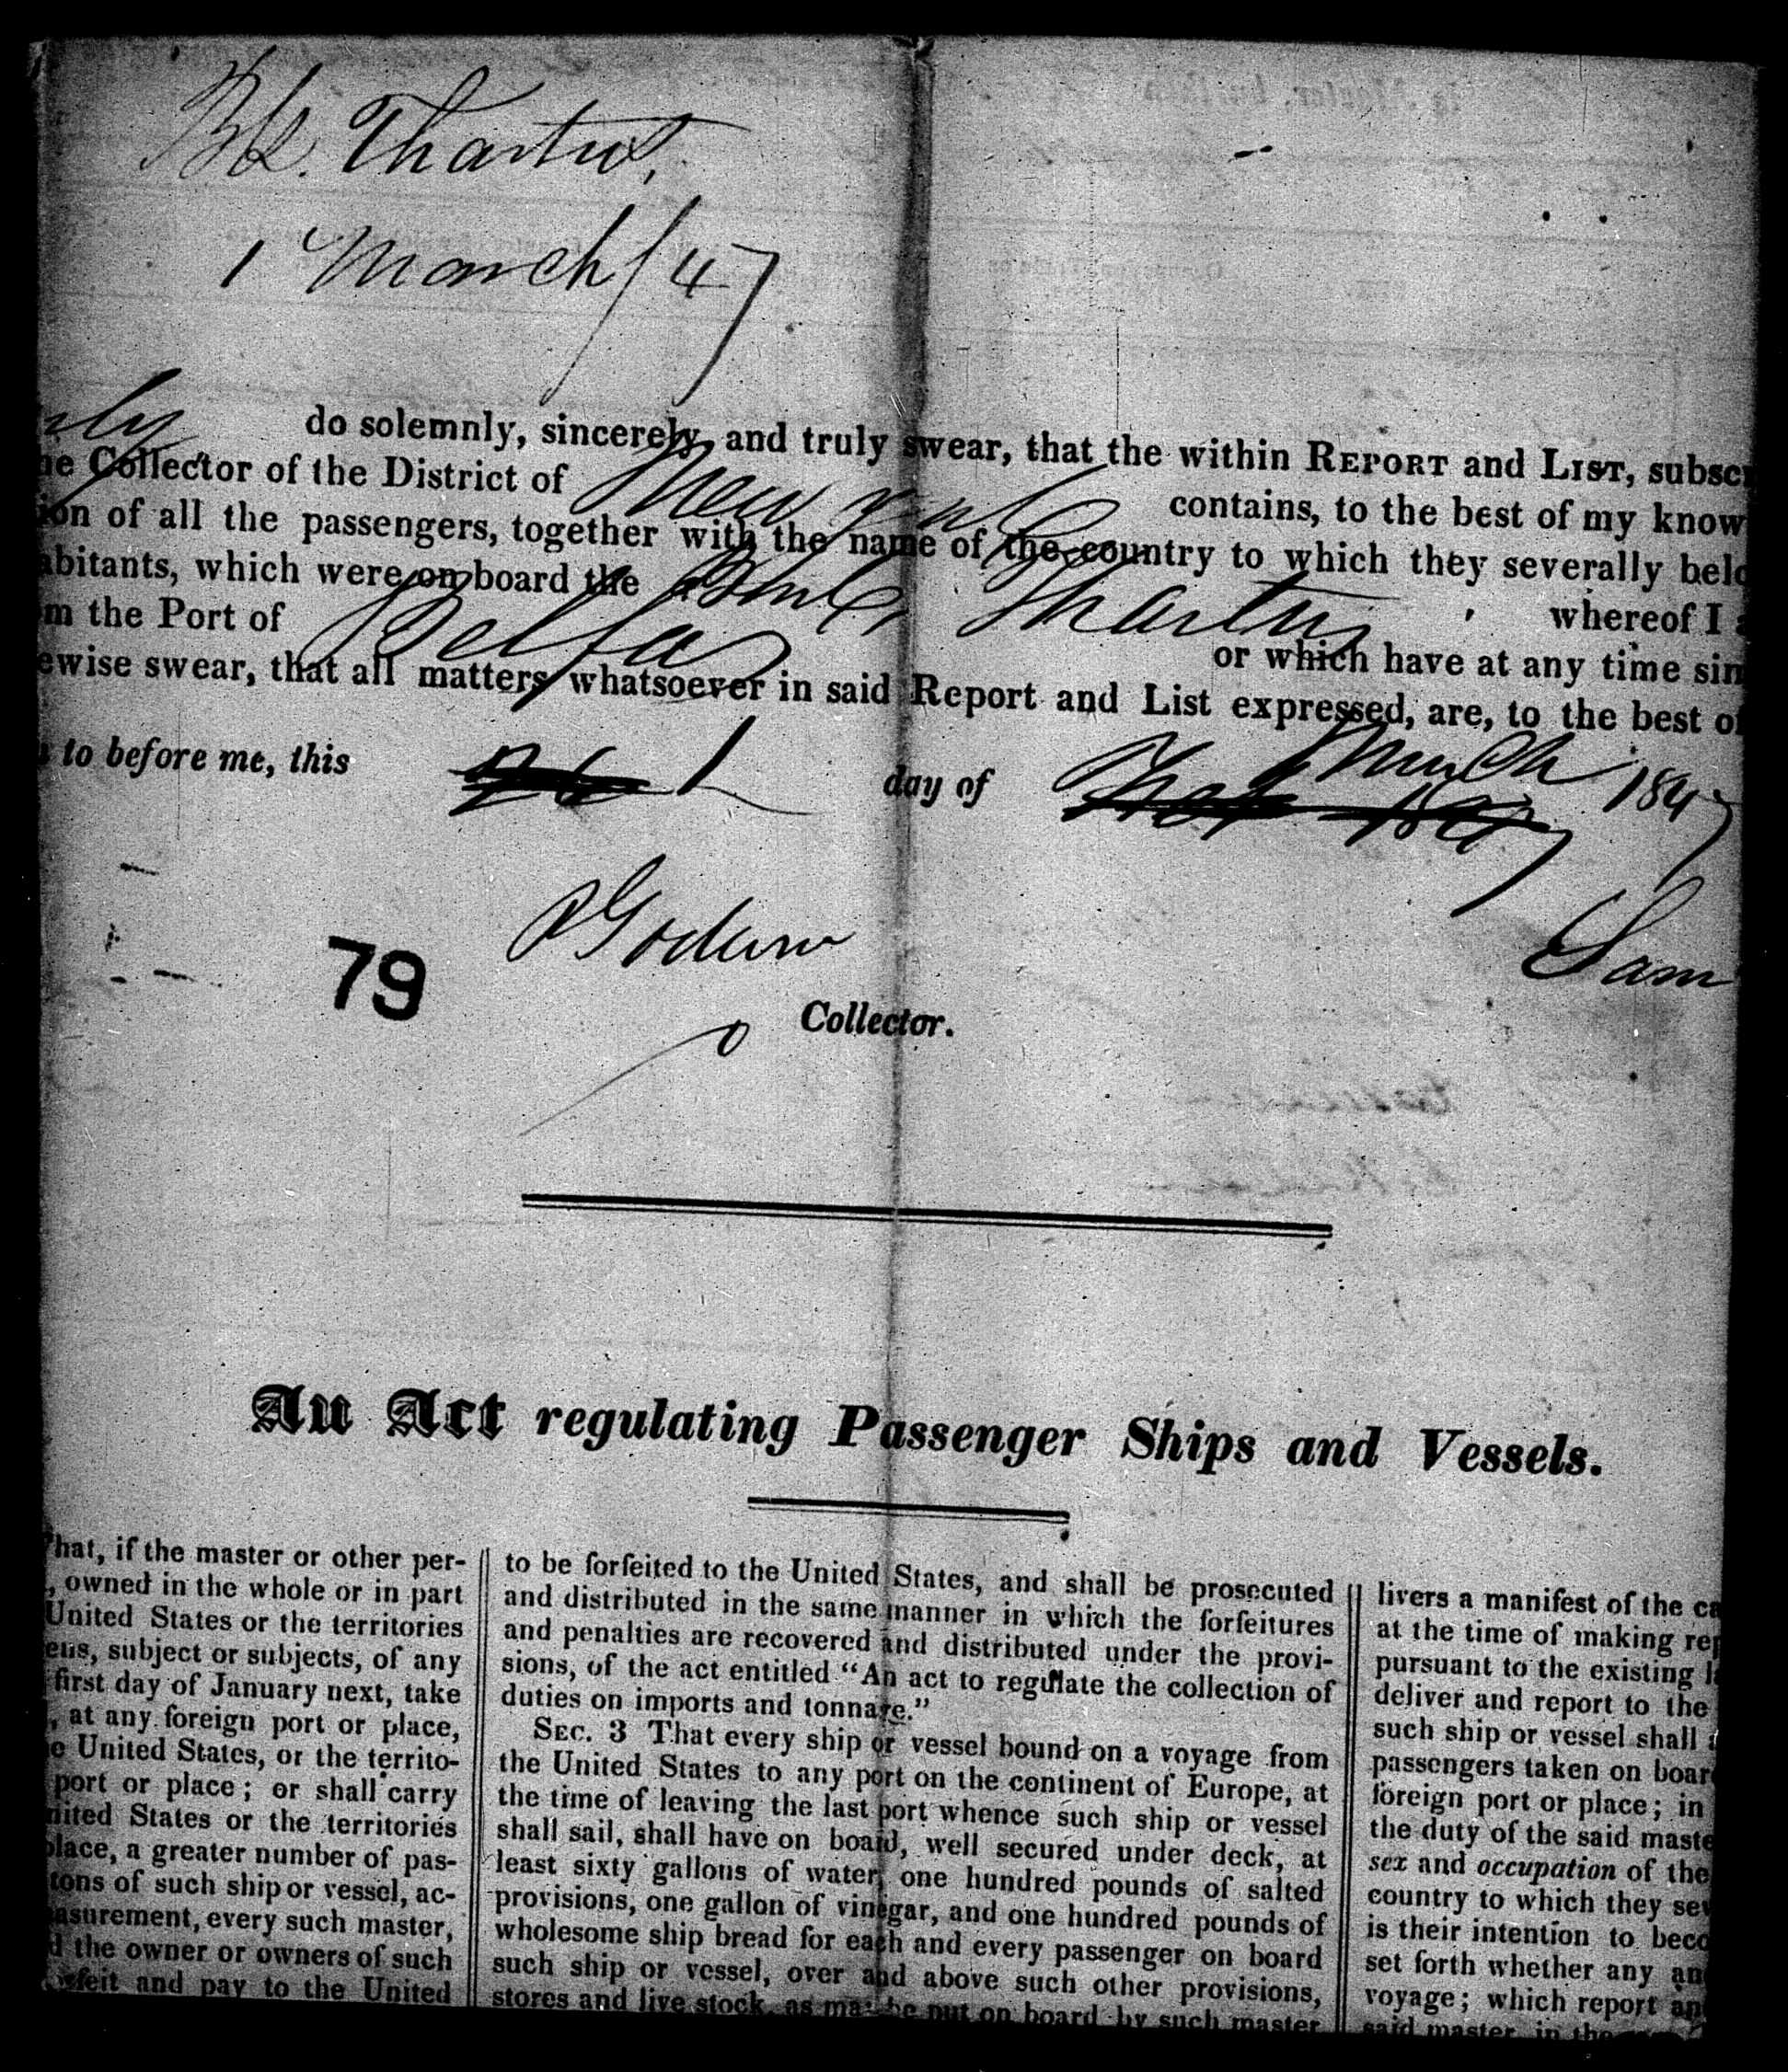 Bk. Thartus,
1 March/47
do solemnly, sincerely, and truly swear, that the within REPORT and LIST, subscr
he Collector of the District of New York contains, to the best of my know
ion of all the passengers, together with the name of the country to which they severally belo
abitants, which were on board the Bark Thartus whereof I a
om the Port of Belfas or which have at any time sin
ewise swear, that all matters whatsoever in said Report and List expressed, are, to the best of
to before me, this 1 day of March 1847
Sam
79
Collector.
An Act regulating Passenger Ships and Vessels.
That, if the master or other per-
, owned in the whole or in part
United States or the territories
ens, subject or subjects, of any
first day of January next, take
, at any foreign port or place,
e United States, or the territo-
port or place; or shall carry
nited States or the territories
place, a greater number of pas-
tons of such ship or vessel, ac-
easurement, every such master,
d the owner or owners of such
feit and pay to the United
to be forfeited to the United States, and shall be prosecuted
and distributed in the same manner in which the forfeitures
and penalties are recovered and distributed under the provi-
sions, of the act entitled "An act to regulate the collection of
duties on imports and tonnage."
SEC. 3 That every ship or vessel bound on a voyage from
the United States to any port on the continent of Europe, at
the time of leaving the last port whence such ship or vessel
shall sail, shall have on board, well secured under deck, at
least sixty gallons of water, one hundred pounds of salted
provisions, one gallon of vinegar, and one hundred pounds of
wholesome ship bread for each and every passenger on board
such ship or vessel, over and above such other provisions,
stores and live stock, as may be put on board by such master
livers a manifest of the ca
at the time of making rep
pursuant to the existing l
deliver and report to the
such ship or vessel shall
passengers taken on boar
foreign port or place; in
the duty of the said maste
sex and occupation of the
country to which they sev
is their intention to beco
set forth whether any an
voyage; which report an
said master, in the